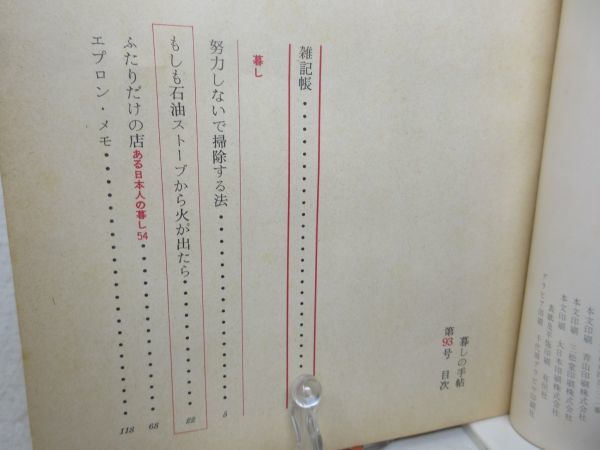 本文印刷 青山印刷株式会社
本文印刷 三松堂印刷株式会社
本文印刷 大日本印刷株式会社
暮しの手帖
第93号 目次
雑記帳
暮し
努力しないで掃除する法 8
もしも石油ストーブから火が出たら 22
ふたりだけの店 ある日本人の暮し54 68
エプロン・メモ 118